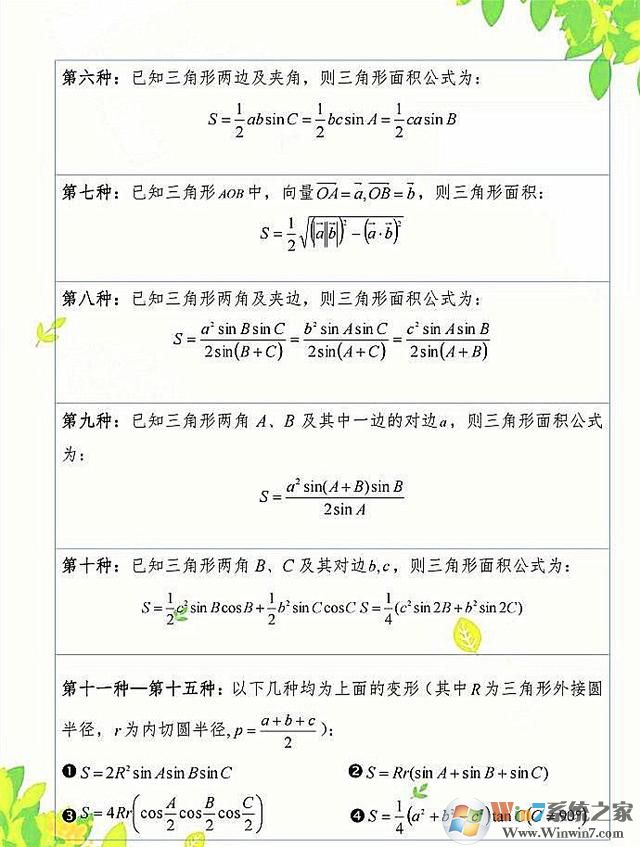 第六种：已知三角形两边及夹角，则三角形面积公式为：
S = 1/2 ab sin C = 1/2 bc sin A = 1/2 ca sin B
第七种：已知三角形 AOB 中，向量 OA⃗ = a⃗, OB⃗ = b⃗，则三角形面积：
S = 1/2 √((|a⃗||b⃗|)² − (a⃗·b⃗)²)
第八种：已知三角形两角及夹边，则三角形面积公式为：
S = a² sin B sin C / 2sin(B+C) = b² sin A sin C / 2sin(A+C) = c² sin A sin B / 2sin(A+B)
第九种：已知三角形两角 A、B 及其中一边的对边a，则三角形面积公式
为：
S = a² sin(A+B) sin B / 2 sin A
第十种：已知三角形两角 B、C 及其对边b,c，则三角形面积公式为：
S = 1/2 c² sin B cos B + 1/2 b² sin C cos C S = 1/4 (c² sin 2B + b² sin 2C)
第十一种—第十五种：以下几种均为上面的变形（其中 R 为三角形外接圆
半径，r 为内切圆半径, p = (a+b+c)/2）：
❶ S = 2R² sin A sin B sin C ❷ S = Rr(sin A + sin B + sin C)
❸ S = 4Rr(cos A/2 cos B/2 cos C/2) ❹ S = 1/4 (a² + b² − c²) tan C (C ≠ 90°)
Win7系统之家
Www.Winwin7.com